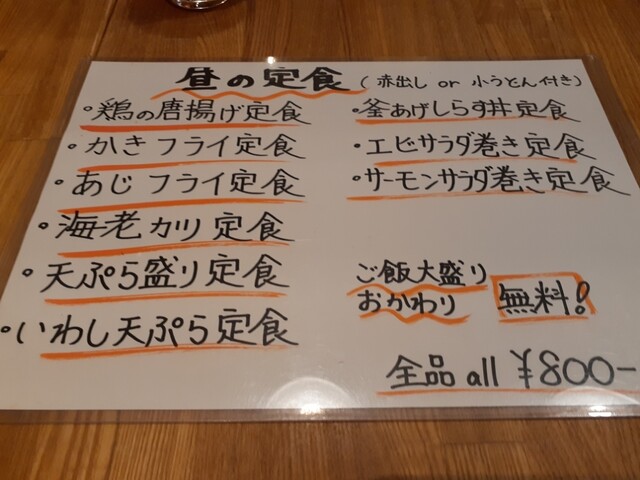 昼の定食 (赤出し or 小うどん付き)
・鶏の唐揚げ定食
・かきフライ定食
・あじフライ定食
・海老カツ定食
・天ぷら盛り定食
・いわし天ぷら定食
・釜あげしらす丼定食
・エビサラダ巻き定食
・サーモンサラダ巻き定食
ご飯大盛り
おかわり 無料!
全品 all ¥800-